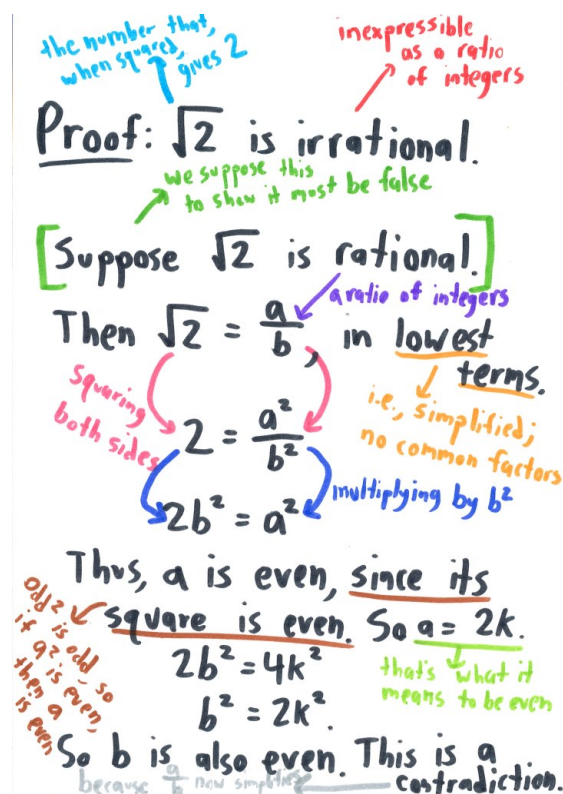 the number that,
when squared,
gives 2
inexpressible
as a ratio
of integers
Proof: √2 is irrational.
we suppose this
to show it must be false
[Suppose √2 is rational.]
a ratio of integers
Then √2 = a/b, in lowest
terms.
squaring
both sides
i.e., simplified;
no common factors
2 = a²/b²
multiplying by b²
2b² = a²
Thus, a is even, since its
square is even. So a = 2k.
odd² is odd, so
if a² is even,
then a
is even
that's what it
means to be even
2b² = 4k²
b² = 2k².
So b is also even. This is a
contradiction.
because a/b now simplifies